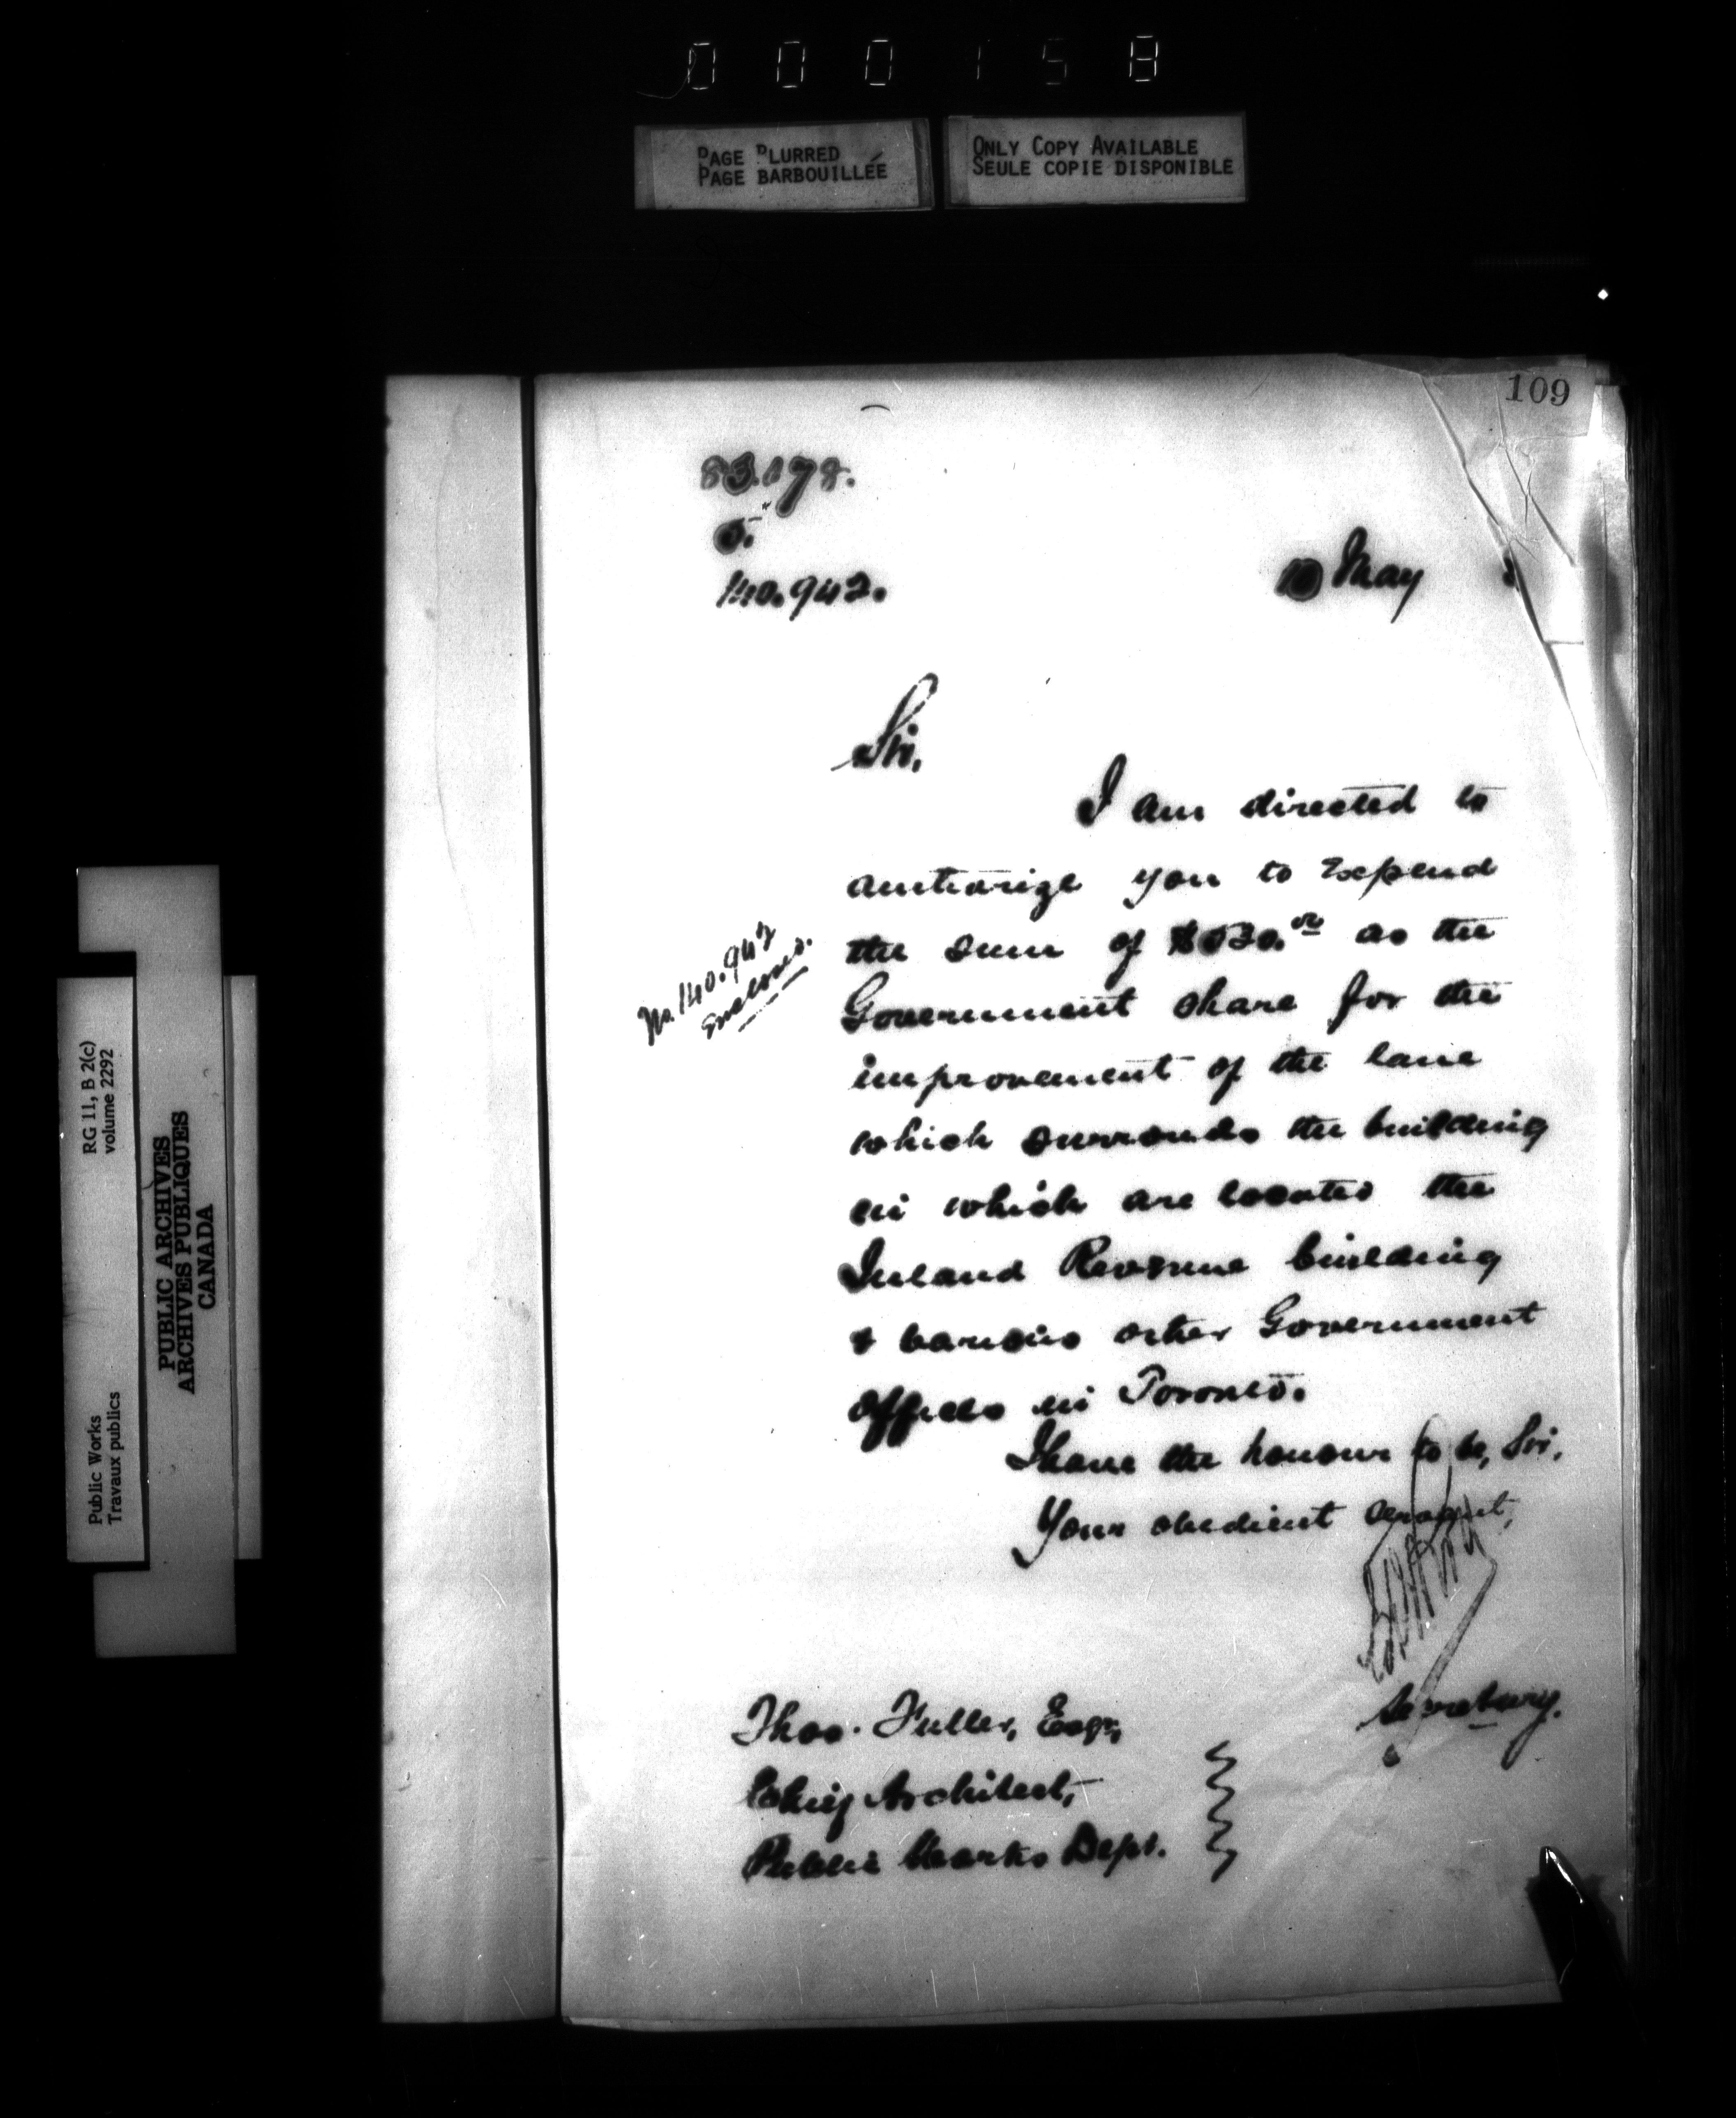 000158
PAGE BLURRED
PAGE BARBOUILLÉE
ONLY COPY AVAILABLE
SEULE COPIE DISPONIBLE
109
83.178.
5.
140.942.
10 May
Sir,
I am directed to
authorize you to expend
the sum of as the
Government share for the
improvement of the lane
which surrounds the building
in which are located the
Inland Revenue building
& various other Government
offices in Toronto.
I have the honour to be, Sir,
Your obedient servant,
Secretary.
No. 140.942
Enclosed.
Thos. Fuller, Esqr,
Chief Architect,
Public Works Dept.
RG 11, B 2(c)
volume 2292
Public Works
Travaux publics
PUBLIC ARCHIVES
ARCHIVES PUBLIQUES
CANADA